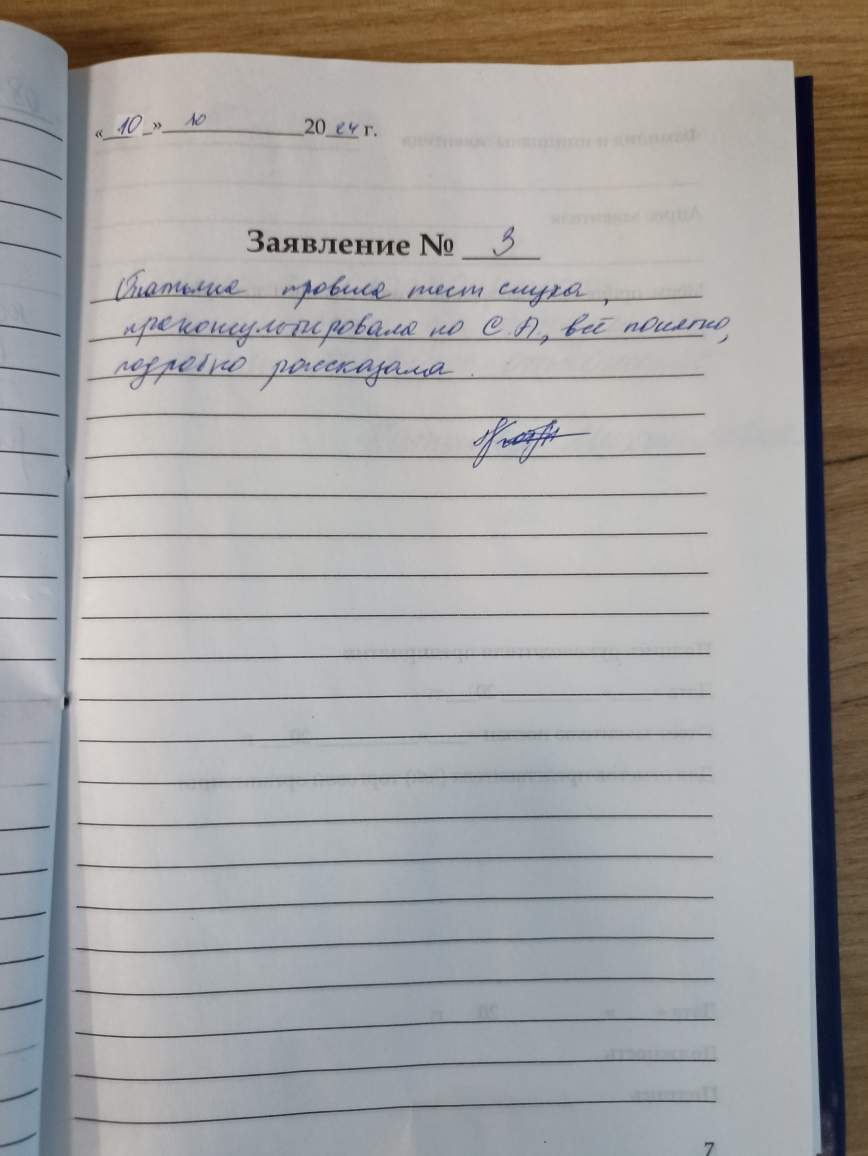 « 10 » 10 20 24 г.
Заявление № 3
провила тест слуха,
проконсультировала по С.А, всё понятно,
подробно рассказала.
7